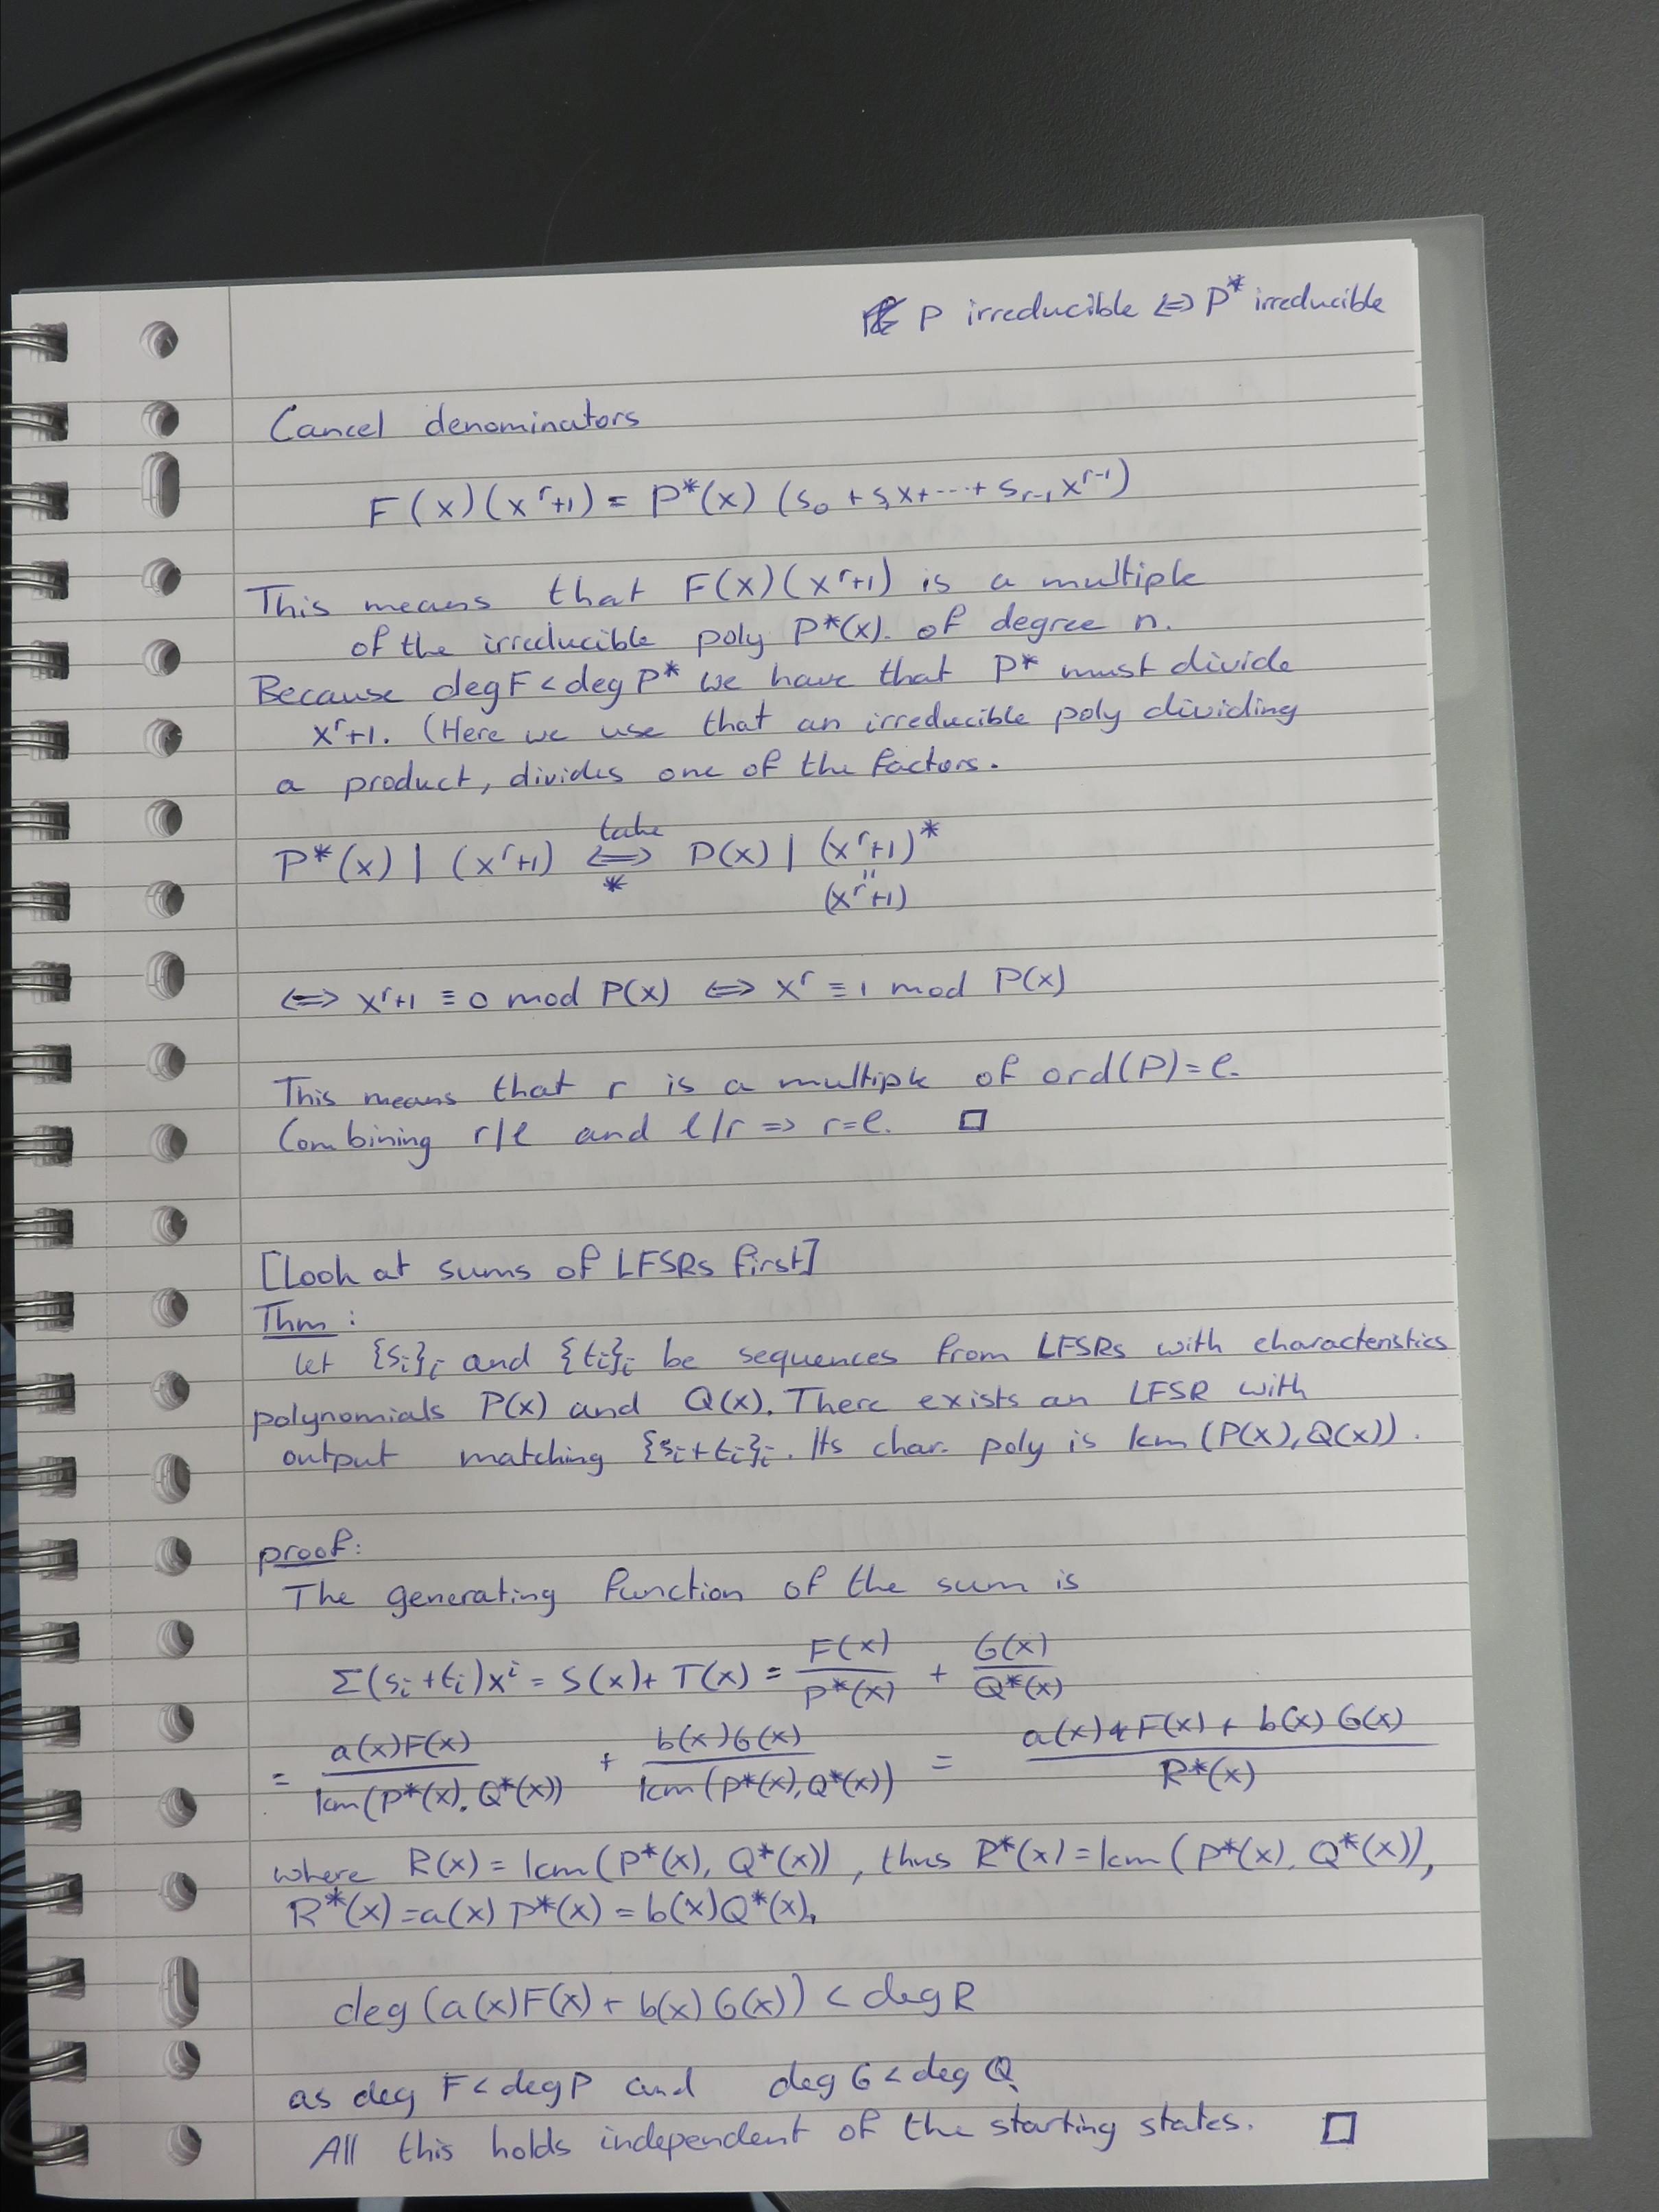 P irreducible ⇔ P* irreducible
Cancel denominators
F(x)(x^r+1) = P*(x) (s_0 + s_1x+⋯+ s_{r-1}x^{r-1})
This means that F(x)(x^r+1) is a multiple
of the irreducible poly P*(x). of degree n.
Because deg F < deg P* we have that P* must divide
x^r+1. (Here we use that an irreducible poly dividing
a product, divides one of the factors.
take
P*(x) | (x^r+1) ⇔ P(x) | (x^r+1)*
* "
(x^r+1)
⇔ x^r+1 ≡ 0 mod P(x) ⇔ x^r ≡ 1 mod P(x)
This means that r is a multiple of ord(P)=ℓ.
Combining r/ℓ and ℓ/r ⇒ r=ℓ. □
[Look at sums of LFSRs first]
Thm:
let {s_i}_i and {t_i}_i be sequences from LFSRs with characteristics
polynomials P(x) and Q(x). There exists an LFSR with
output matching {s_i+t_i}_i. Its char. poly is lcm(P(x),Q(x)).
proof:
The generating function of the sum is
Σ(s_i+t_i)x^i = S(x)+T(x) = F(x)/P*(x) + G(x)/Q*(x)
= a(x)F(x)/lcm(P*(x),Q*(x)) + b(x)G(x)/lcm(P*(x),Q*(x)) = a(x)F(x) + b(x)G(x)/R*(x)
where R(x) = lcm(P*(x), Q*(x)), thus R*(x) = lcm(P*(x), Q*(x)),
R*(x) = a(x) P*(x) = b(x)Q*(x).
deg(a(x)F(x) + b(x)G(x)) < deg R
as deg F < deg P and deg G < deg Q
All this holds independent of the starting states. □